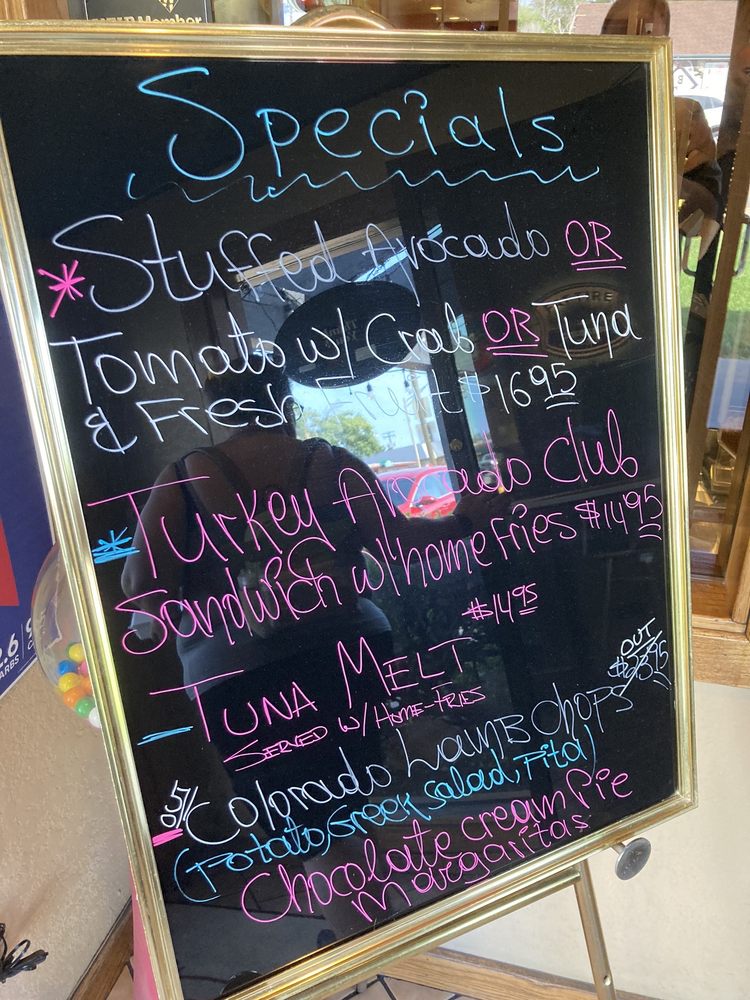 Specials
*Stuffed Avocado OR
Tomato w/ Crab OR Tuna
& Fresh Fruit $16 95
*Turkey Avocado Club
Sandwich w/ home fries $14 95
$14 95
- TUNA MELT
SERVED W/ HOME-FRIES
OUT
Colorado Lamb Chops
(Potato, Greek salad, Pita)
Chocolate cream Pie
Margaritas